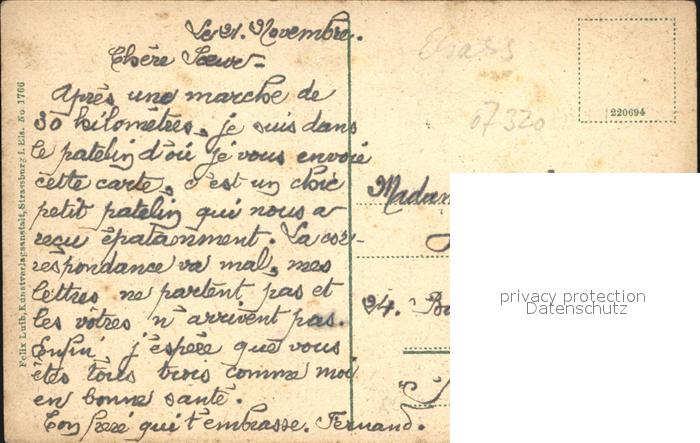 Le 21. Novembre.
Chère Sœur -
Après une marche de
30 kilomètres, je suis dans
le patelin d'où je vous envoie
cette carte, c'est un chic
petit patelin qui nous a
reçu épatamment. La cor-
respondance va mal, mes
lettres ne partent pas et
les vôtres n'arrivent pas.
Enfin j'espère que vous
êtes tous trois comme moi
en bonne santé.
Ton frère qui t'embrasse. Fernand.
Felix Luib, Kunstverlagsanstalt, Strassburg i. Els. No. 1766
Elsass
07320
220694
Madam
24.
privacy protection
Datenschutz